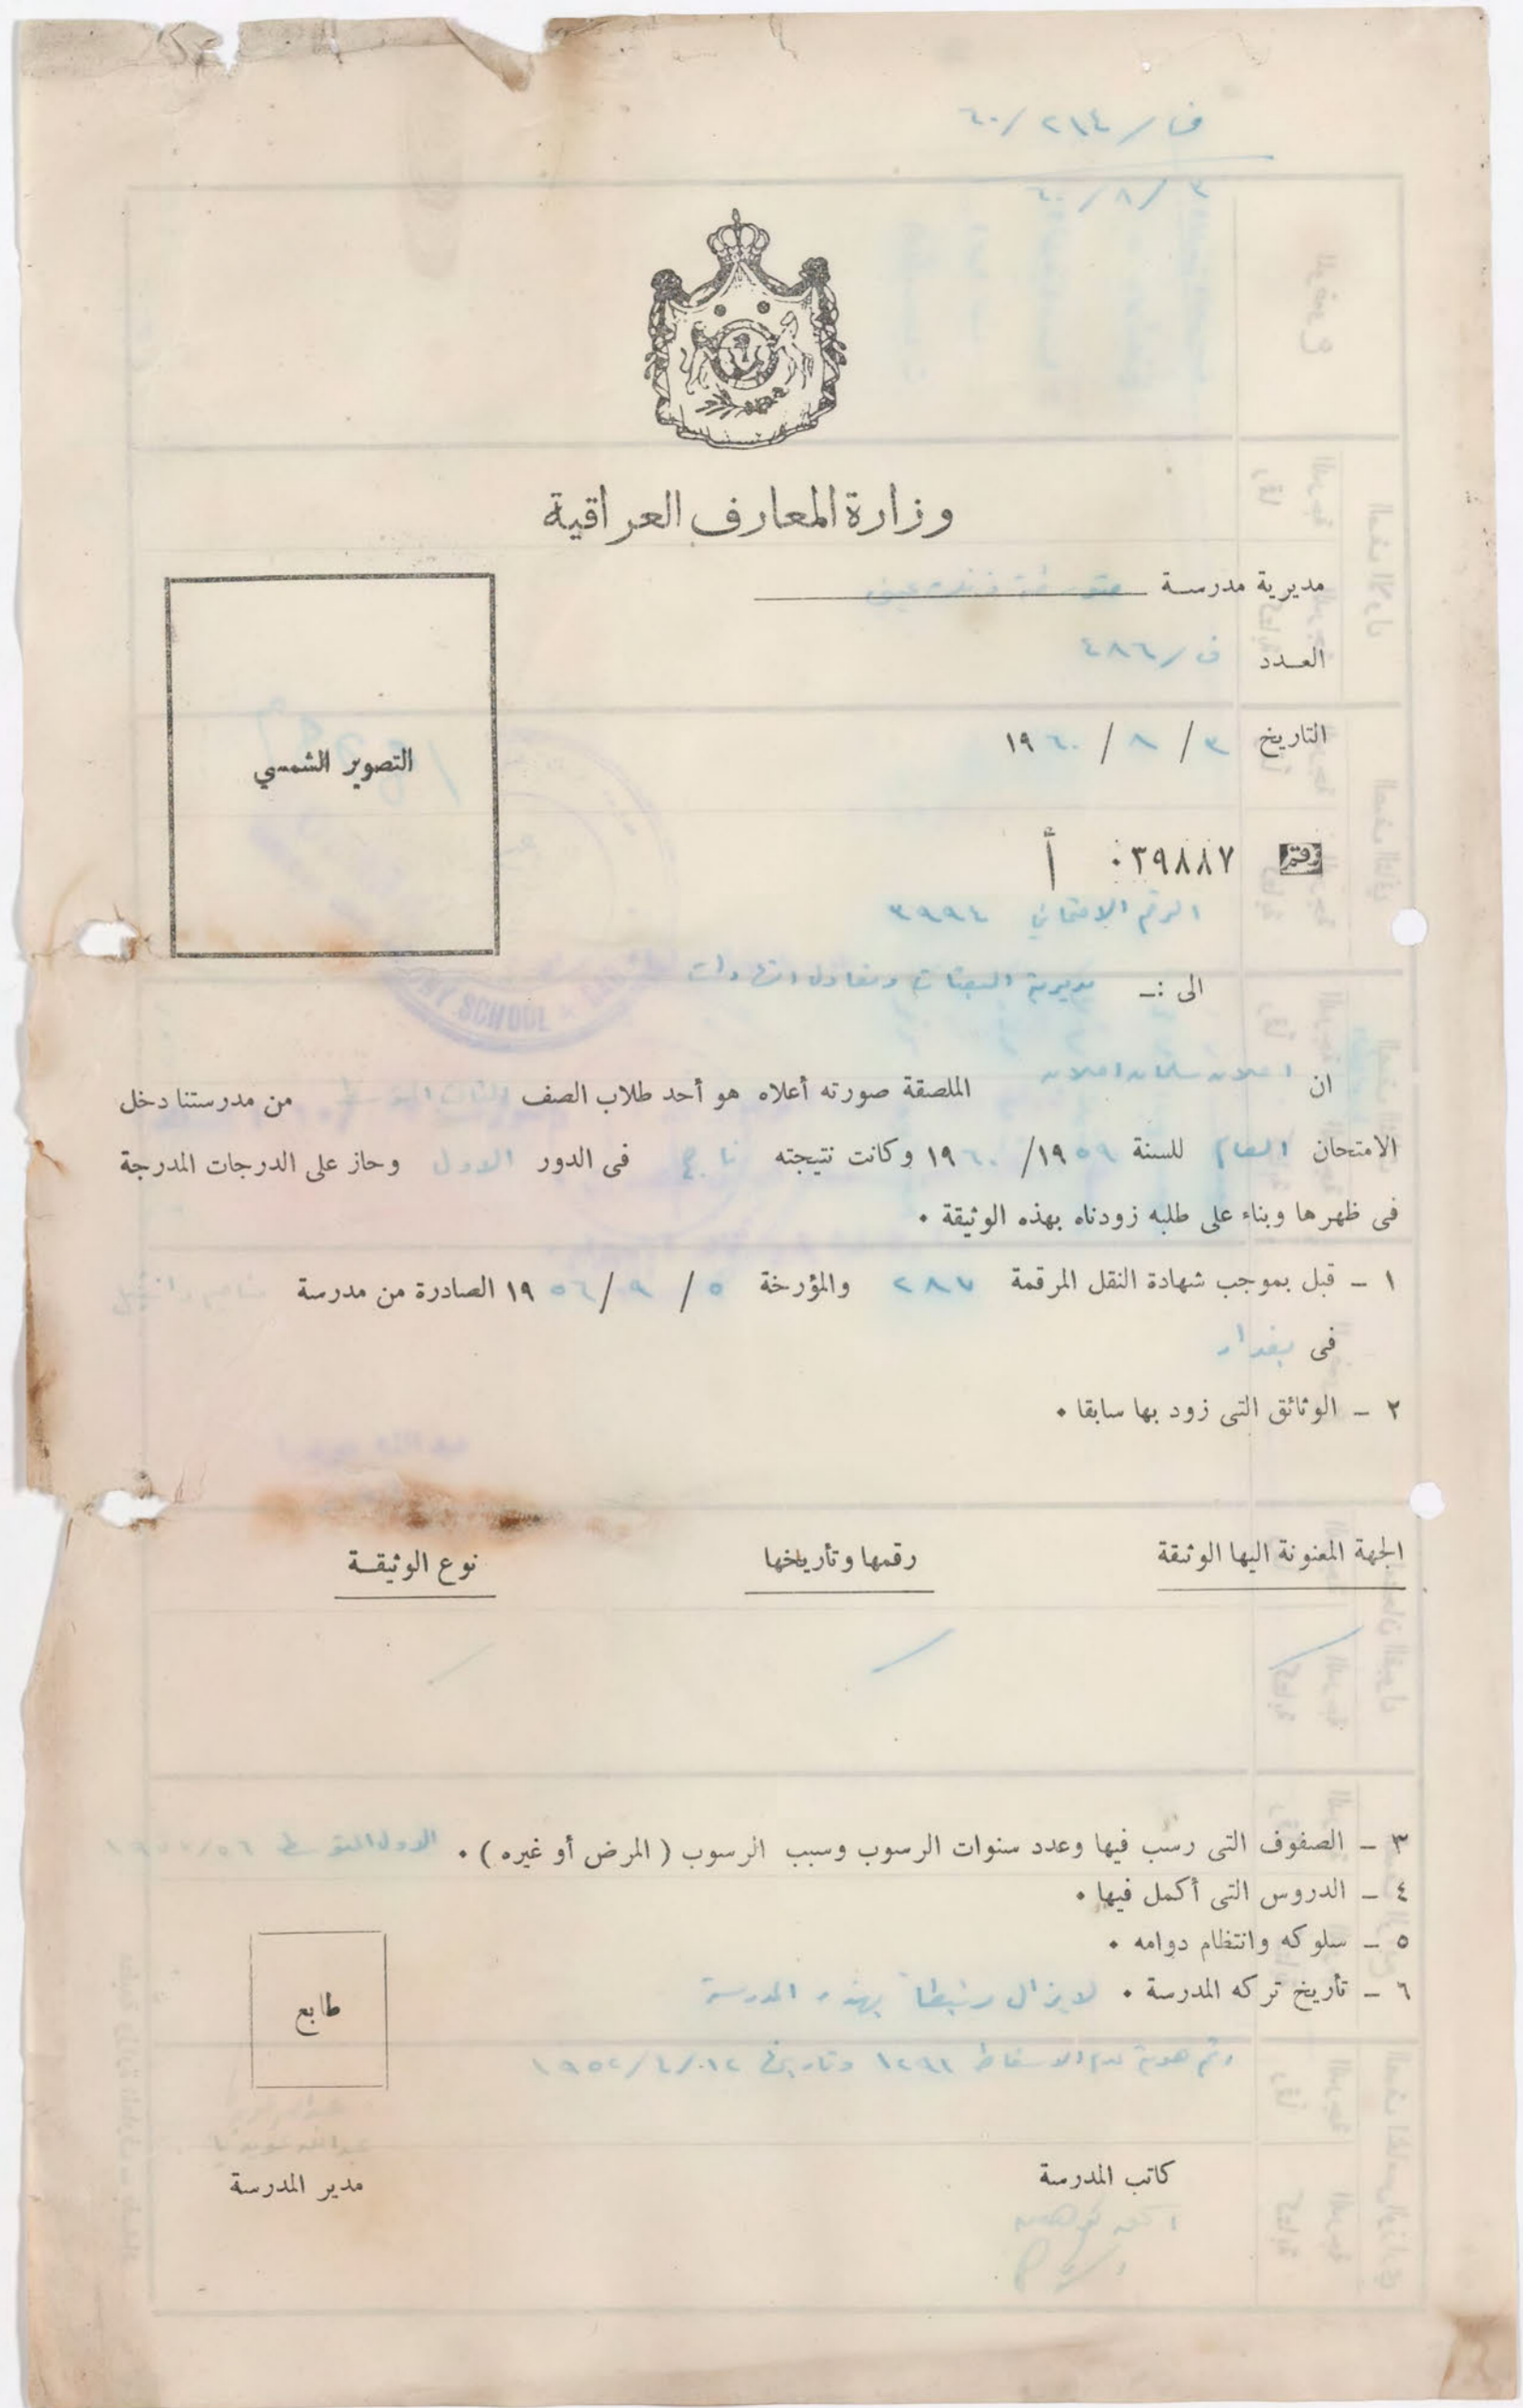 ف / ٢١٤ / ٦٠
٣ / ٨ / ٦٠
وزارة المعارف العراقية
مديرية مدرسة متوسطة فرنك عيني
العدد ف / ٤٨٦
التاريخ ٣ / ٨ / ١٩٦٠
التصوير الشمسي
رقم ٠٣٩٨٨٧ أ
الرقم الامتحاني ٣٩٩٤
الى :ـ مديرية البعثات وتعادل الشهادات
SCHOOL
ان الملصقة صورته أعلاه هو أحد طلاب الصف الثالث المتوسط من مدرستنا دخل
الامتحان العام للسنة ١٩٥٩/ ١٩٦٠ وكانت نتيجته ناجح فى الدور الاول وحاز على الدرجات المدرجة
فى ظهرها وبناء على طلبه زودناه بهذه الوثيقة ٠
١ ـ قبل بموجب شهادة النقل المرقمة ٢٨٧ والمؤرخة ٥ / ٩ / ١٩٥٦ الصادرة من مدرسة
فى بغداد
٢ ـ الوثائق التى زود بها سابقا ٠
الجهة المعنونة اليها الوثيقة رقمها وتأريخها نوع الوثيقـة
٣ ـ الصفوف التى رسب فيها وعدد سنوات الرسوب وسبب الرسوب ( المرض أو غيره ) ٠ الاول المتوسط
٤ ـ الدروس التى أكمل فيها ٠
٥ ـ سلوكه وانتظام دوامه ٠
٦ ـ تأريخ تركه المدرسة ٠ لايزال مرتبطا بهذه المدرسة
طابع
رقم هوية عدم الاسقاط ١٢٩١ وتاريخ ١٢/٤/١٩٥٢
كاتب المدرسة
مدير المدرسة